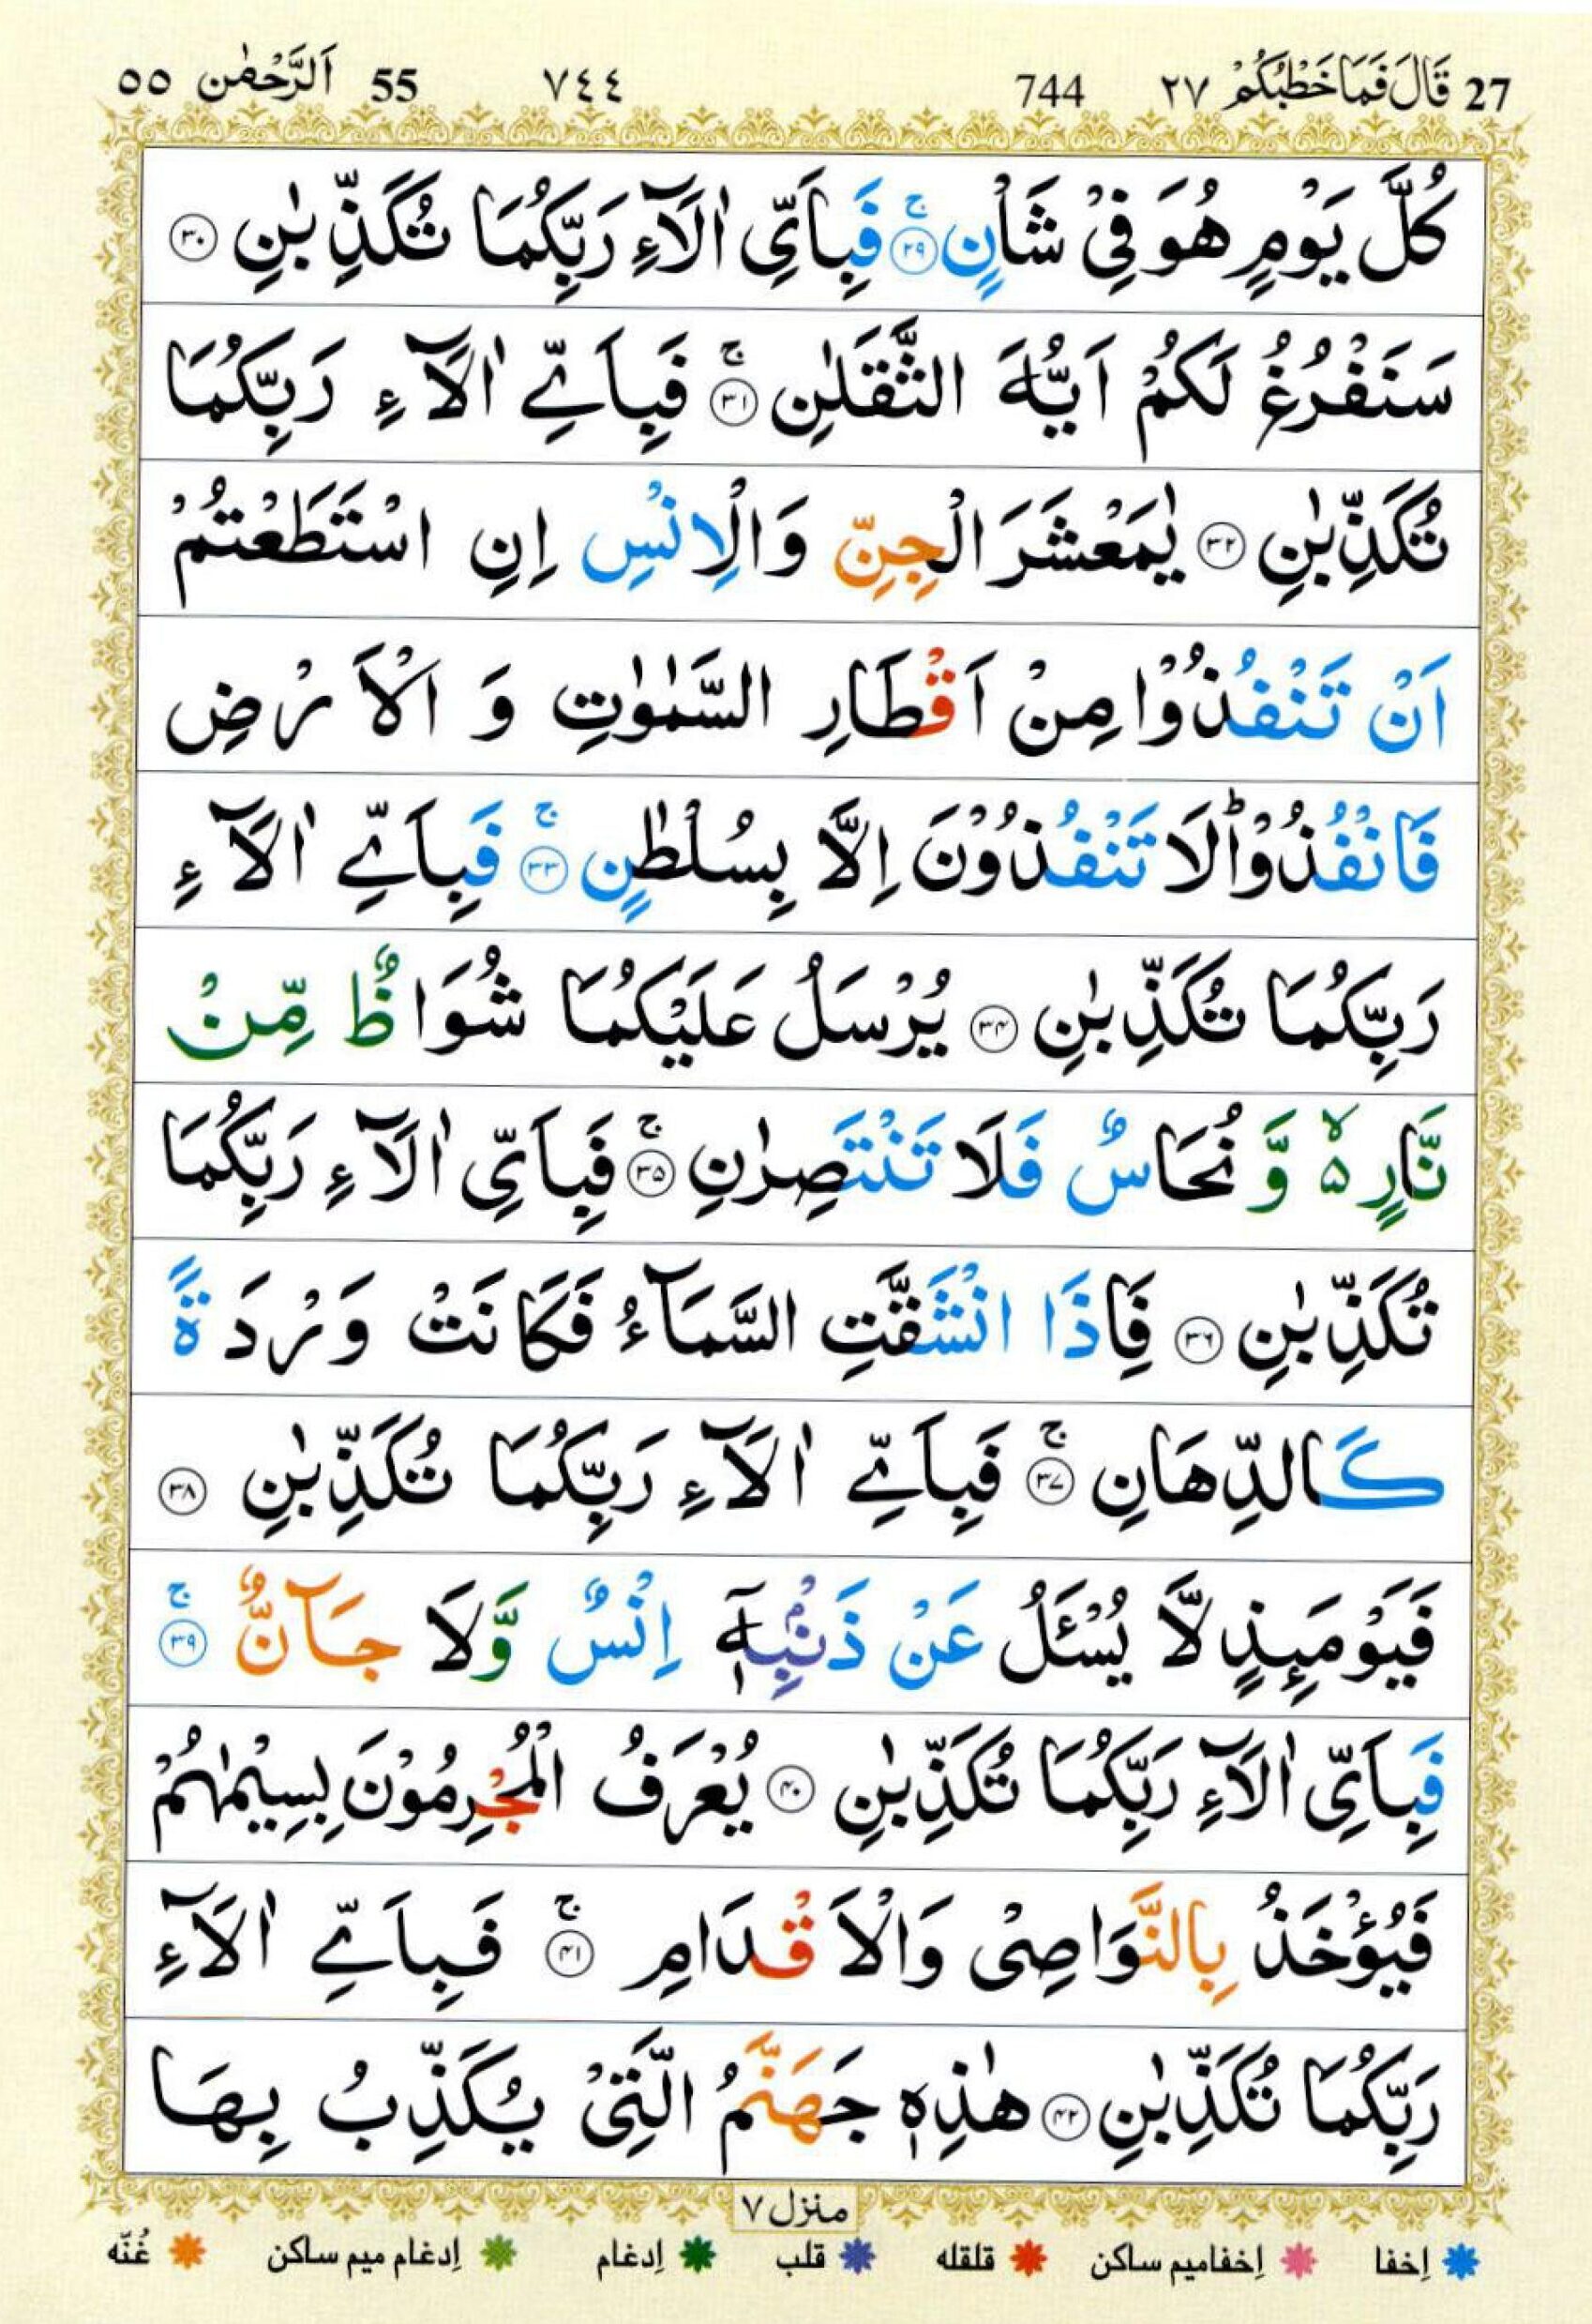 27 قَالَ فَمَا خَطْبُكُمْ ٢٧ 744 ٧٤٤ 55 اَلرَّحْمٰن ٥٥
كُلَّ يَوْمٍ هُوَ فِیْ شَاْنٍ ۚ ﴿۲۹﴾ فَبِاَیِّ اٰلَآءِ رَبِّكُمَا تُكَذِّبٰنِ ﴿۳۰﴾
سَنَفْرُغُ لَكُمْ اَیُّهَ الثَّقَلٰنِ ۚ ﴿۳۱﴾ فَبِاَیِّ اٰلَآءِ رَبِّكُمَا
تُكَذِّبٰنِ ﴿۳۲﴾ یٰمَعْشَرَ الْجِنِّ وَالْاِنْسِ اِنِ اسْتَطَعْتُمْ
اَنْ تَنْفُذُوْا مِنْ اَقْطَارِ السَّمٰوٰتِ وَ الْاَرْضِ
فَانْفُذُوْا ؕ لَا تَنْفُذُوْنَ اِلَّا بِسُلْطٰنٍ ۚ ﴿۳۳﴾ فَبِاَیِّ اٰلَآءِ
رَبِّكُمَا تُكَذِّبٰنِ ﴿۳۴﴾ یُرْسَلُ عَلَیْكُمَا شُوَاظٌ مِّنْ
نَّارٍ ۵ۙ وَّ نُحَاسٌ فَلَا تَنْتَصِرٰنِ ۚ ﴿۳۵﴾ فَبِاَیِّ اٰلَآءِ رَبِّكُمَا
تُكَذِّبٰنِ ﴿۳۶﴾ فَاِذَا انْشَقَّتِ السَّمَآءُ فَكَانَتْ وَرْدَةً
كَالدِّهَانِ ۚ ﴿۳۷﴾ فَبِاَیِّ اٰلَآءِ رَبِّكُمَا تُكَذِّبٰنِ ﴿۳۸﴾
فَیَوْمَىِٕذٍ لَّا یُسْـَٔلُ عَنْ ذَنْۢبِهٖۤ اِنْسٌ وَّلَا جَآنٌّ ۚ ﴿۳۹﴾
فَبِاَیِّ اٰلَآءِ رَبِّكُمَا تُكَذِّبٰنِ ﴿۴۰﴾ یُعْرَفُ الْمُجْرِمُوْنَ بِسِیْمٰهُمْ
فَیُؤْخَذُ بِالنَّوَاصِیْ وَالْاَقْدَامِ ۚ ﴿۴۱﴾ فَبِاَیِّ اٰلَآءِ
رَبِّكُمَا تُكَذِّبٰنِ ﴿۴۲﴾ هٰذِهٖ جَهَنَّمُ الَّتِیْ یُكَذِّبُ بِهَا
منزل ٧
اِخفا اِخفامیم ساکن قلقله قلب اِدغام اِدغام میم ساکن غُنّه